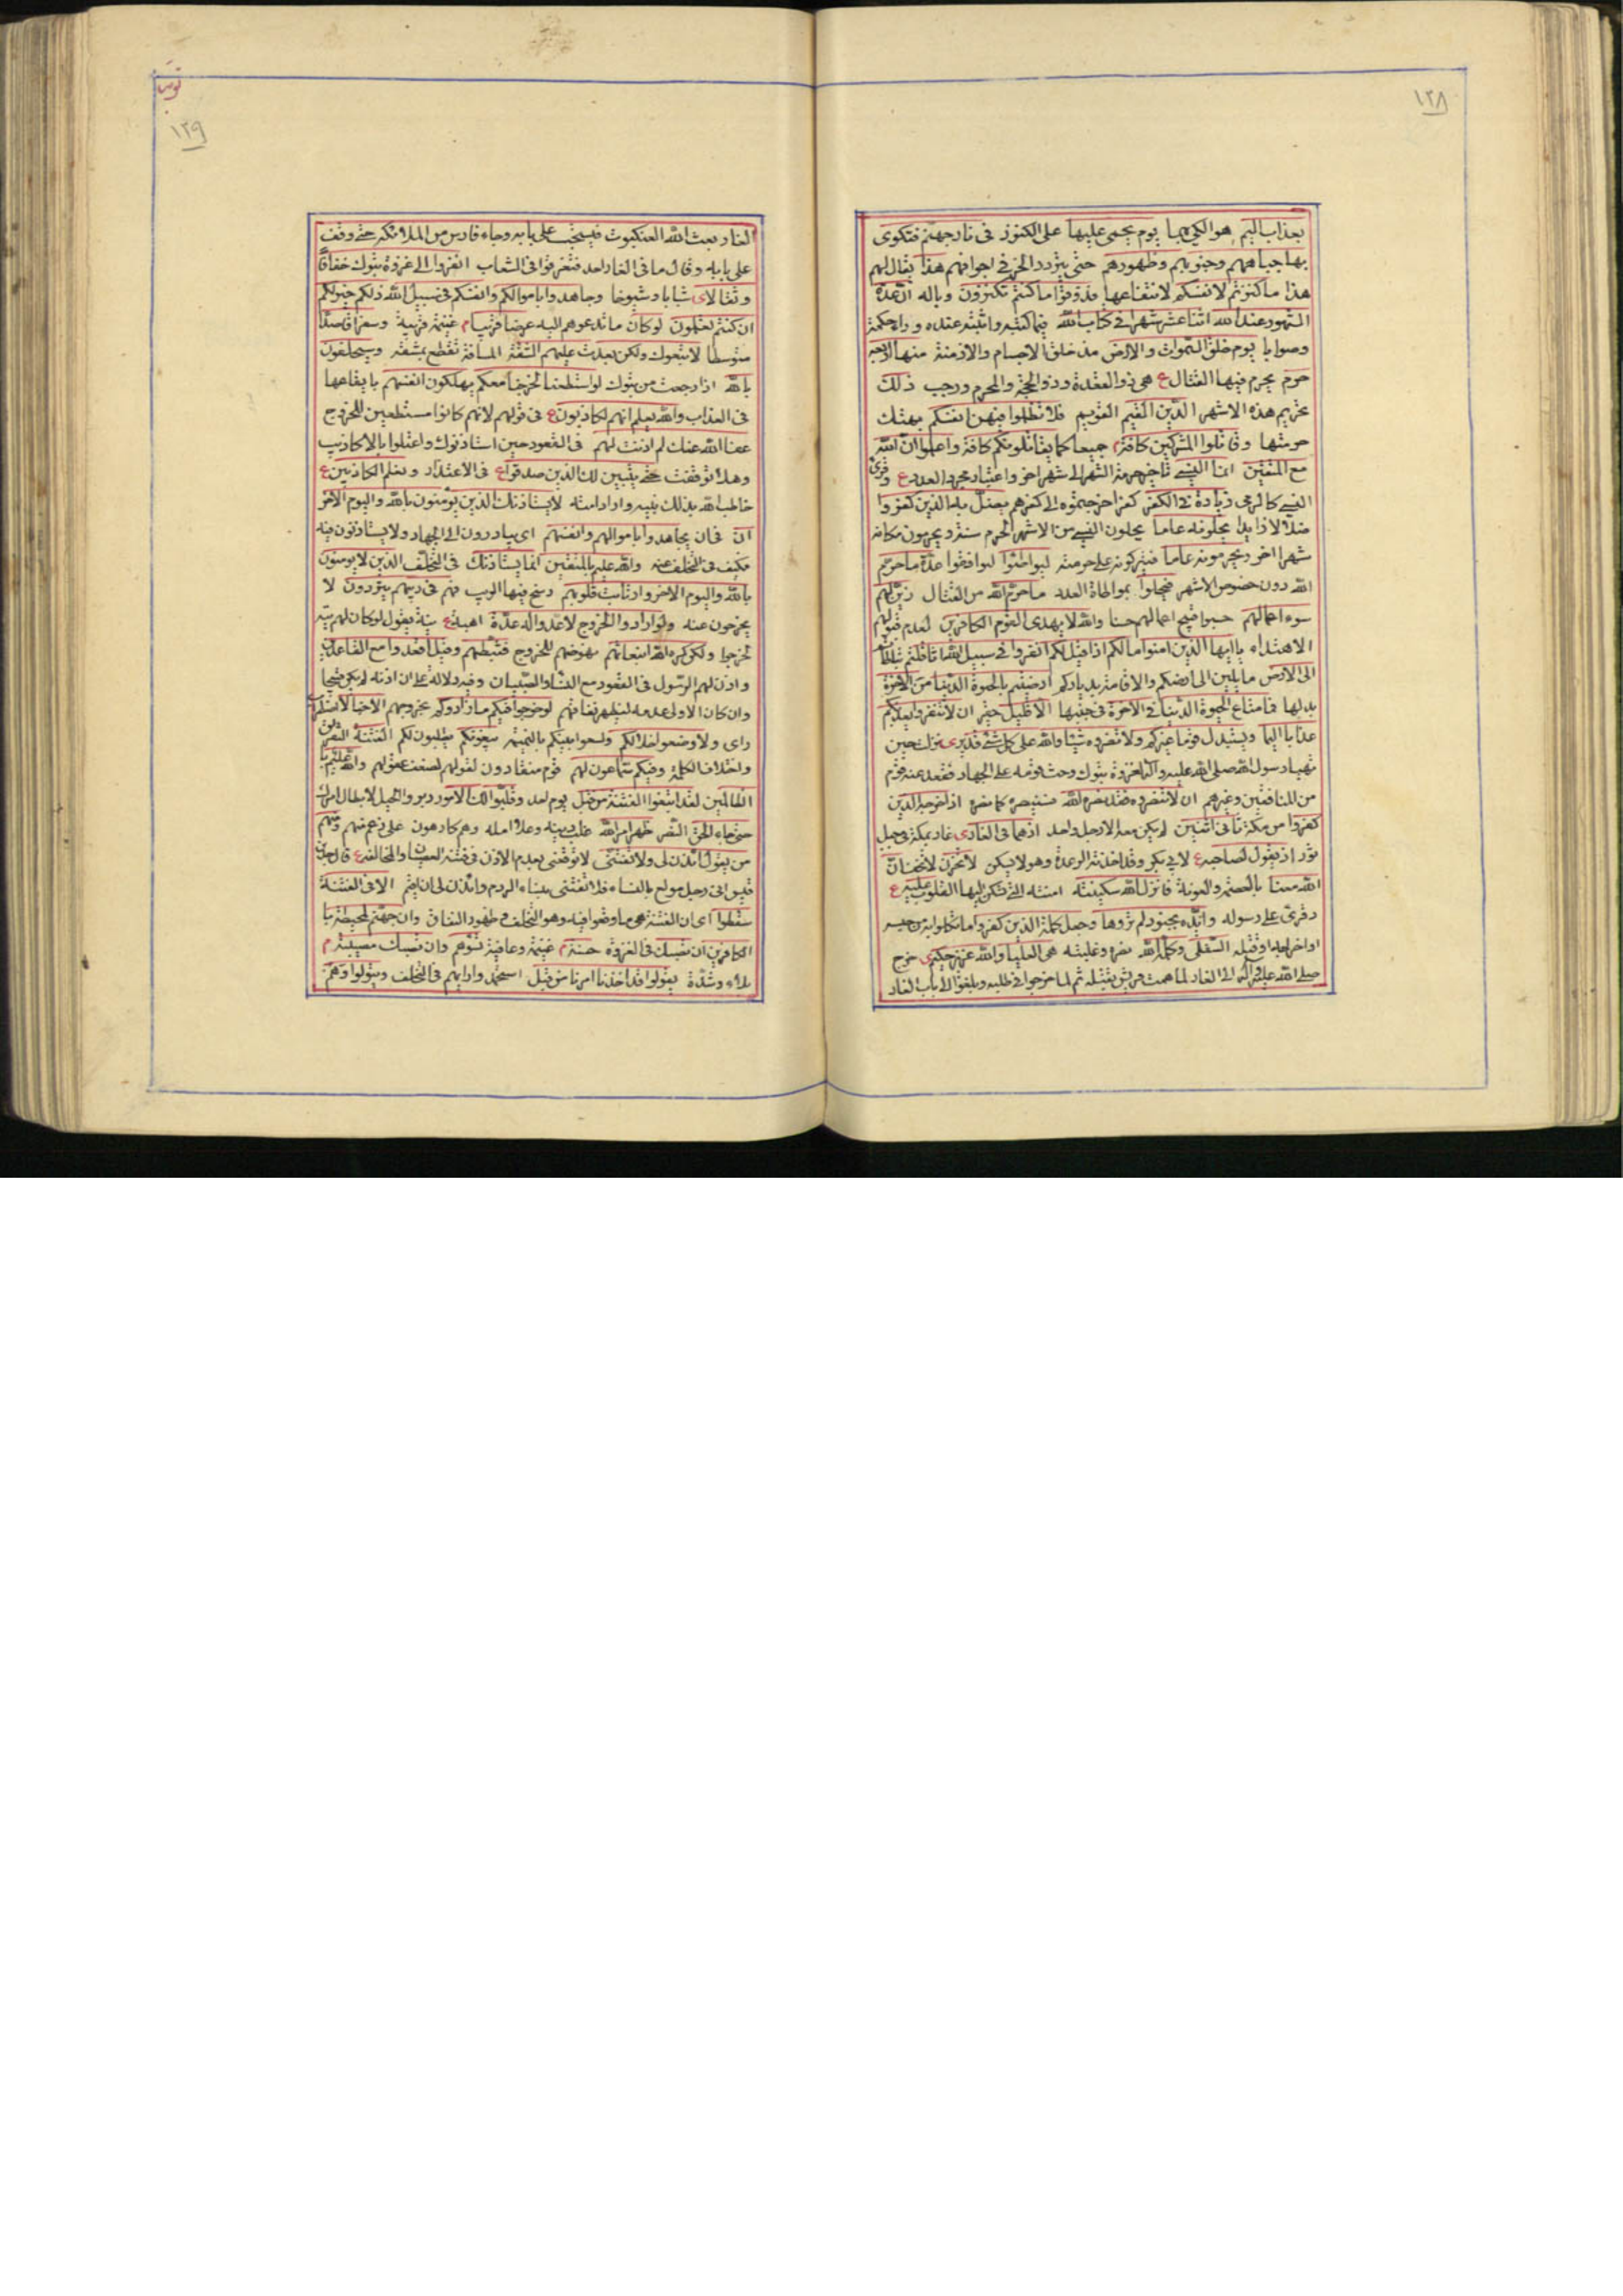 ١٢٨
بعذاب اليم هو الكي بهما يوم يحمى عليها على الكنوز فى نار جهنم فتكوى
بها جباههم وجنوبهم وظهورهم حتى يتردد الحر فى اجوافهم هذا يقال لهم
هذا ما كنزتم لانفسكم لانتفاعها فذوقوا ما كنتم تكنزون وباله ان عدة
الشهور عند الله اثنا عشر شهرا فى كتاب الله فيما كتبه واثبته عنده وراه حكمة
وصوابا يوم خلق السموات والارض مذ خلق الاجسام والازمنة منها اربعة
حرم يحرم فيها القتال ع هى ذو القعدة وذو الحجة والمحرم ورجب ذلك
تحريم هذه الاشهر الدين القيم القويم فلا تظلموا فيهن انفسكم بهتك
حرمتها وقاتلوا المشركين كافة جميعا كما يقاتلونكم كافة واعلموا ان الله
مع المتقين انما النسيء تاخير حرمة الشهر الى شهر اخر واعتبار مجرد العدد ع وقرئ
النسي كالرمى زيادة فى الكفر كفر اخر ضموه الى كفرهم يضل به الذين كفروا
ضلالا زايدا يحلونه عاما يحلون النسيء من الاشهر الحرم سنة ويحرمون مكانه
شهرا اخر ويحرمونه عاما فيتركونه على حرمته ليواطئوا ليوافقوا عدة ما حرم
الله دون خصوص الاشهر فيحلوا بمواطاة العدد ما حرم الله من القتال زين لهم
سوء اعمالهم حسبوا قبيح اعمالهم حسنا والله لا يهدى القوم الكافرين لعدم قبولهم
الاهتداء يا ايها الذين امنوا ما لكم اذا قيل لكم انفروا فى سبيل الله اثاقلتم تباطأتم
الى الارض مايلين الى ارضكم والاقامة بدياركم ارضيتم بالحيوة الدنيا من الاخرة
بدلها فما متاع الحيوة الدنيا فى الاخرة فى جنبها الا قليل حقير ان لا تنفروا يعذبكم
عذابا اليما ويستبدل قوما غيركم ولا تضروه شيئا والله على كل شئ قدير ى نزلت حين
تهيا رسول الله صلى الله عليه واله لغزوة تبوك وحث قومه على الجهاد فقعد عنه قوم
من المنافقين وغيرهم ان لا تنصروه فقد نصره الله فسينصره كما نصره اذ اخرجه الذين
كفروا من مكة ثانى اثنين لم يكن معه الا رجل واحد اذ هما فى الغار ى غار بمكة فى جبل
ثور اذ يقول لصاحبه ع لابى بكر وقد اخذته الرعدة وهو لا يسكن لا تحزن لا تخف ان
الله معنا بالعصمة والمعونة فانزل الله سكينته امنته التى تسكن اليها القلوب عليه ع
وقرئ على رسوله وايده بجنود لم تروها وجعل كلمة الذين كفروا ما تكلموا به من حبسه
او اخراجه او قتله السفلى وكلمة الله نصره وغلبته هى العليا والله عزيز حكيم ى خرج
صلى الله عليه واله الى الغار لما همت قريش بقتله ثم لما خرجوا فى طلبه وبلغوا الى باب الغار
توبة
١٢٩
الغار بعث الله العنكبوت فنسجت على بابه وجاء فارس من الملائكة حتى وقف
على بابه وقال ما فى الغار احد فتفرقوا فى الشعاب انفروا الى غزوة تبوك خفافا
وثقالا ى شبابا وشيوخا وجاهدوا باموالكم وانفسكم فى سبيل الله ذلكم خير لكم
ان كنتم تعلمون لو كان ما تدعوهم اليه عرضا قريبا م غنيمة قريبة وسفرا قاصدا
متوسطا لاتبعوك ولكن بعدت عليهم الشقة المسافة تقطع بمشقة وسيحلفون
بالله اذا رجعت من تبوك لو استطعنا لخرجنا معكم يهلكون انفسهم بايقاعها
فى العذاب والله يعلم انهم لكاذبون ع فى قولهم لانهم كانوا مستطعين للخروج
عفا الله عنك لم اذنت لهم فى القعود حين استاذنوك واعتلوا بالاكاذيب
وهلا توقفت حتى يتبين لك الذين صدقوا ع فى الاعتذار وتعلم الكاذبين ع
خاطب الله بذلك نبيه واراد امته لا يستاذنك الذين يؤمنون بالله واليوم الاخر
ان فى ان يجاهدوا باموالهم وانفسهم اى يبادرون الى الجهاد ولا يستاذنون فيه
فكيف فى التخلف عنه والله عليم بالمتقين انما يستاذنك فى التخلف الذين لا يومنون
بالله واليوم الاخر وارتابت قلوبهم رسخ فيها الريب فهم فى ريبهم يترددون لا
يخرجون عنه ولو ارادوا الخروج لاعدوا له عدة اهبة ع نية يقول لو كان لهم نية
لخرجوا ولكن كره الله انبعاثهم نهوضهم للخروج فثبطهم وقيل اقعدوا مع القاعدين
واذن لهم الرسول فى القعود مع النساء والصبيان وفيه دلالة على ان اذنه لم يكن قبيحا
وان كان الاولى عدمه ليظهر نفاقهم لو خرجوا فيكم ما زادوكم بخروجهم الا خبالا اضطراب
راى ولاوضعوا خلالكم ولسعوا بينكم بالنميمة يبغونكم يطلبون لكم الفتنة التفرق
واختلاف الكلمة وفيكم سماعون لهم قوم منقادون لقولهم لضعف عقولهم والله عليم با
الظالمين لقد ابتغوا الفتنة من قبل يوم احد وقلبوا لك الامور دبروا الحيل لابطال امرك
حتى جاء الحق النصر وظهر امر الله غلب دينه وعلا امله وهم كارهون على زعم منهم ومنهم
من يقول ائذن لى ولا تفتنى لا توقعنى بعدم الاذن فى فتنة العصيان والمخالفة ع قال جد بن
قيس انى رجل مولع بالنساء فلا تفتنى بنساء الروم وائذن لى ان اقيم الا فى الفتنة
سقطوا اى ان الفتنة هى ما وقعوا فيه وهو التخلف فى ظهور النفاق وان جهنم لمحيطة با
الكافرين ان تصبك فى الغزوة حسنة م غنيمة وعافية تسؤهم وان تصبك مصيبة م
بلاء وشدة يقولوا قد اخذنا امرنا من قبل استحمدوا رايهم فى التخلف ويتولوا وهم